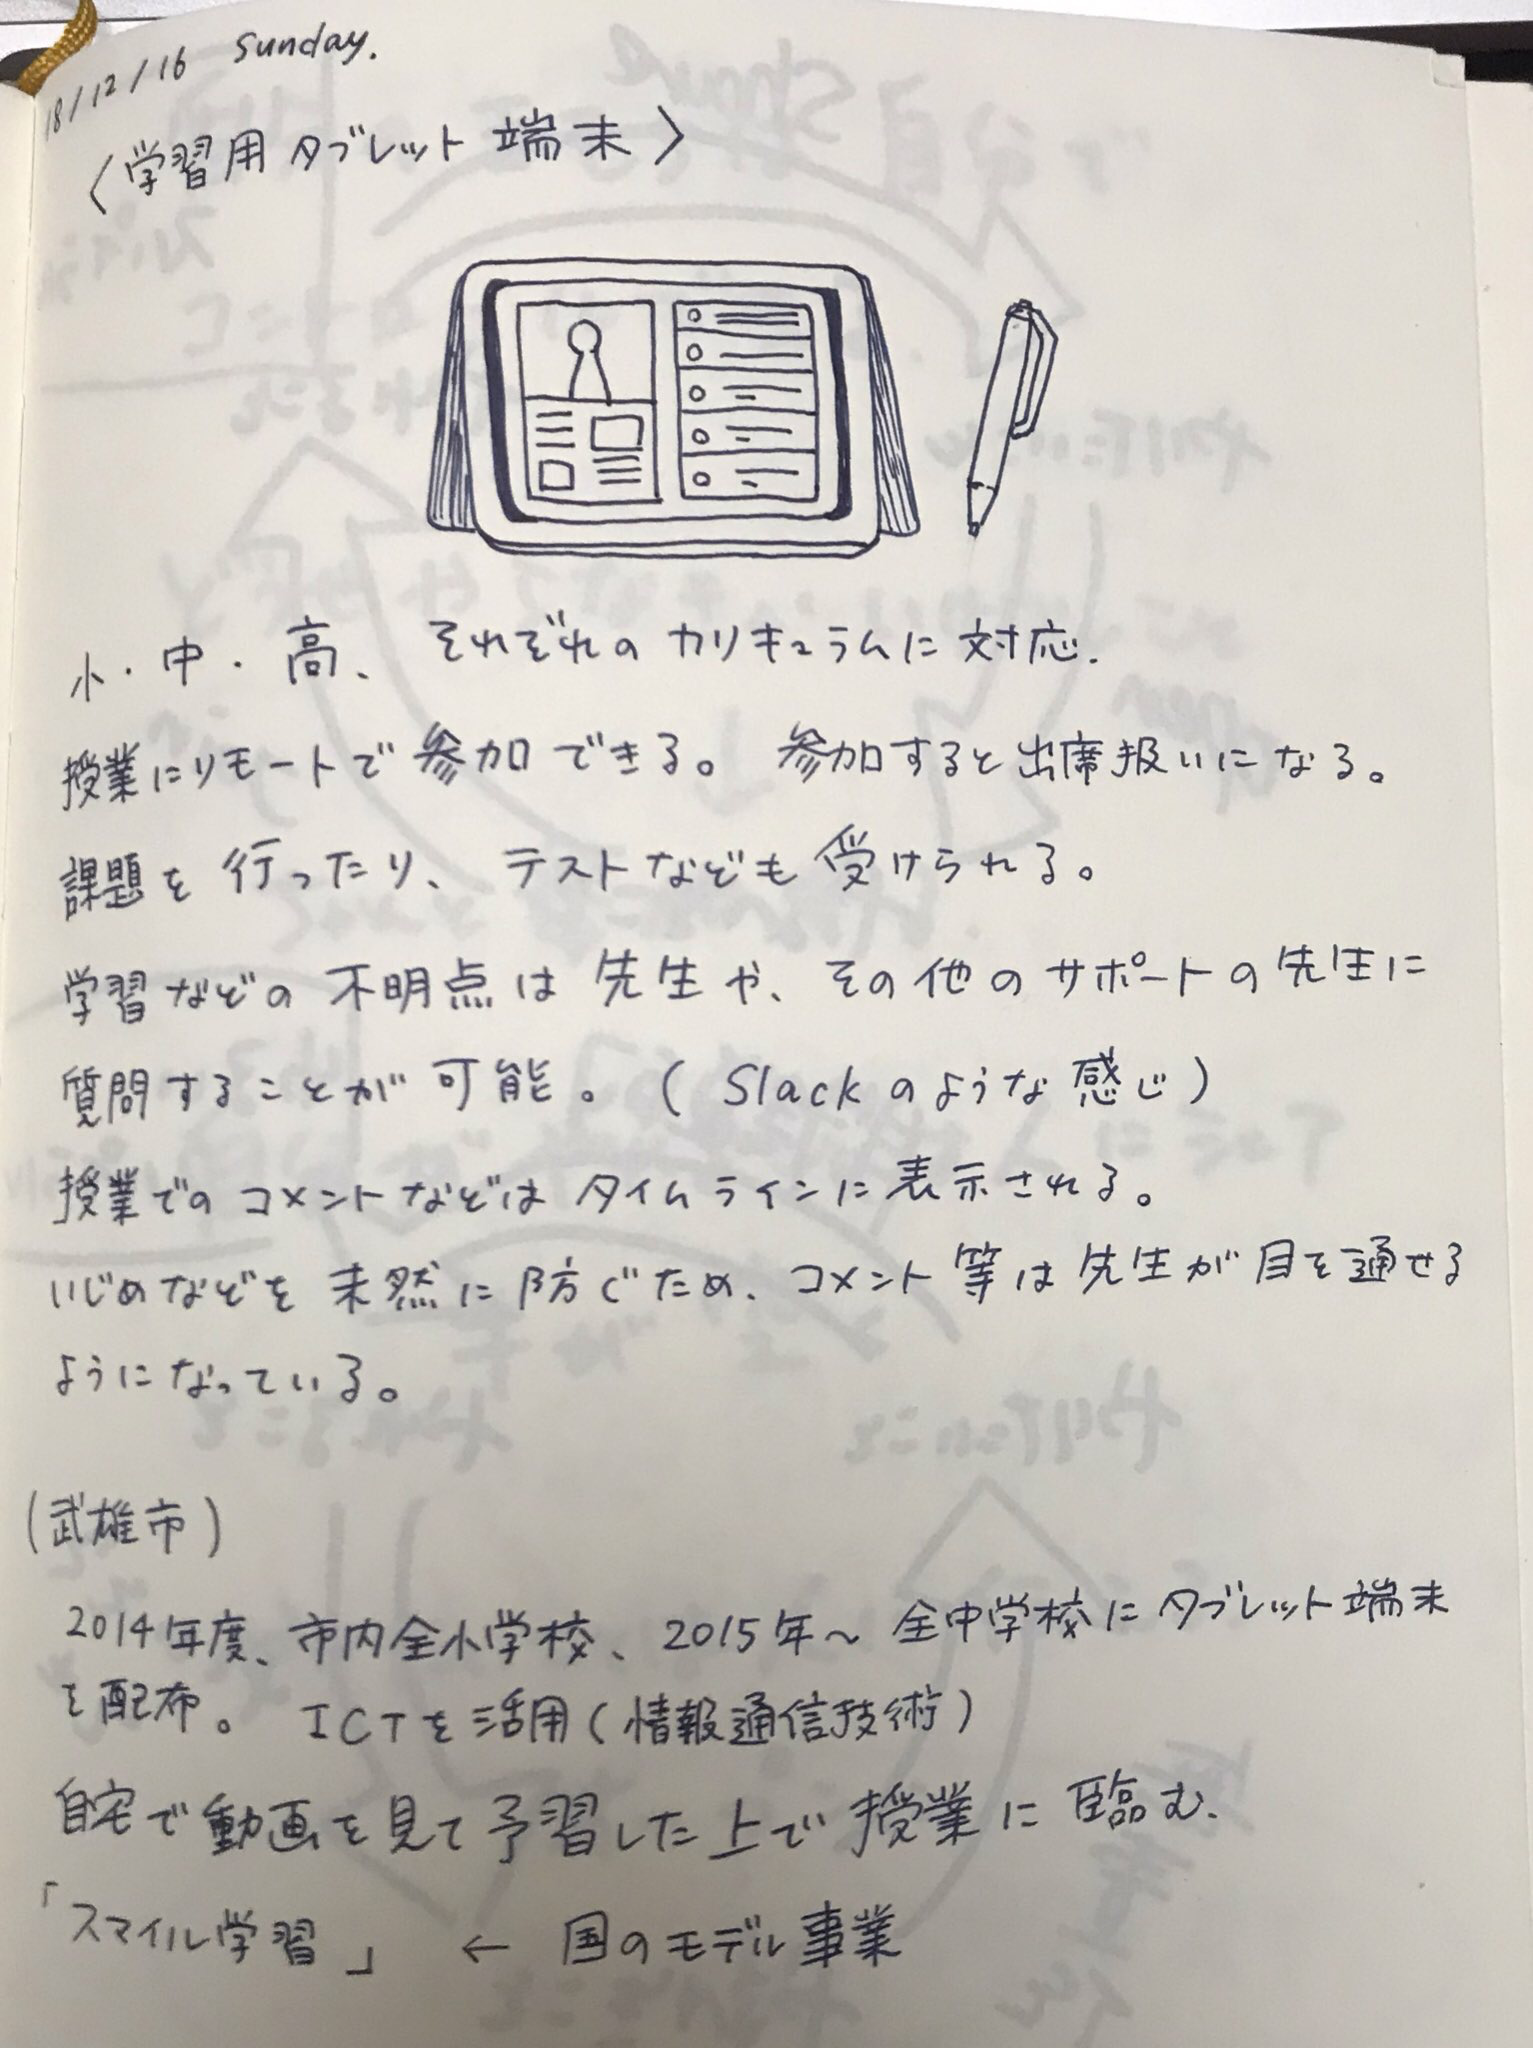 18/12/16 Sunday.
〈学習用タブレット端末〉
小・中・高、それぞれのカリキュラムに対応.
授業にリモートで参加できる。参加すると出席扱いになる。
課題を行ったり、テストなども受けられる。
学習などの不明点は先生や、その他のサポートの先生に
質問することが可能。(Slackのような感じ)
授業でのコメントなどはタイムラインに表示される。
いじめなどを未然に防ぐため、コメント等は先生が目を通せる
ようになっている。
(武雄市)
2014年度、市内全小学校、2015年~全中学校にタブレット端末
を配布。ICTを活用(情報通信技術)
自宅で動画を見て予習した上で授業に臨む、
「スマイル学習」 ← 国のモデル事業